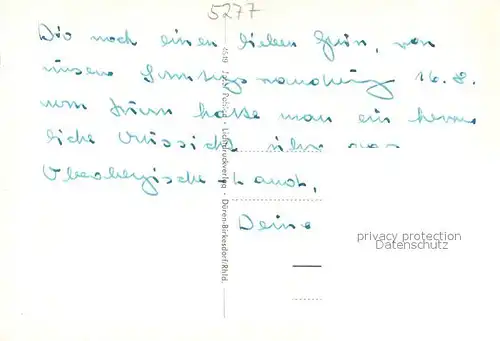 5277
Dir noch einen lieben Gruß, von
unserer Sonntagswanderung 16.8.
vom Turm hatte man ein herr-
liche Aussicht über das
Oberbergische Land.
Deine
4519 Peters - Lichtdruckverlag - Düren-Birkesdorf/Rhld.
privacy protection
Datenschutz